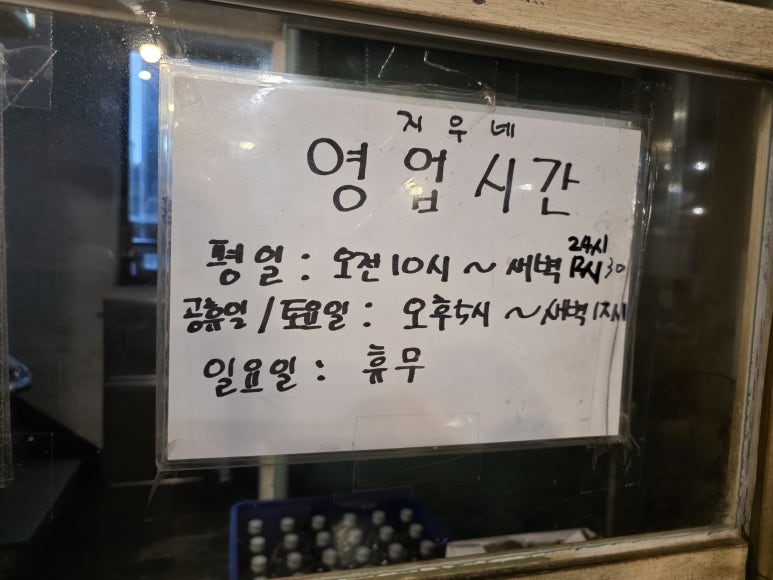 지우네
영업시간
24시
평일 : 오전 10시 ~ 새벽 30
공휴일 / 토요일 : 오후 5시 ~ 새벽
일요일 : 휴무